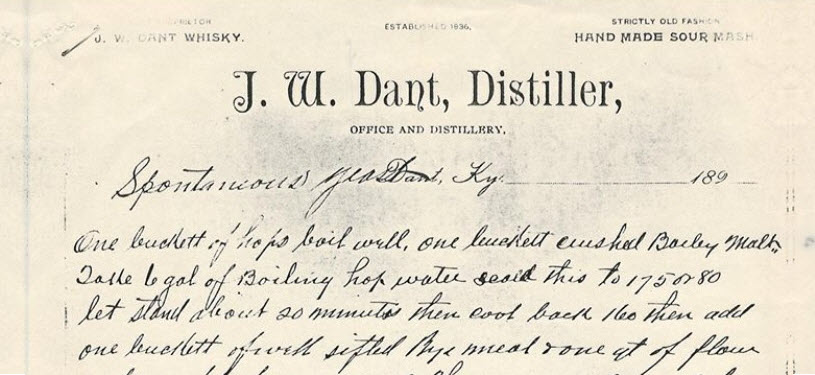 PROPRIETOR
J. W. DANT WHISKY.
ESTABLISHED 1836.
STRICTLY OLD FASHION
HAND MADE SOUR MASH.
J. W. Dant, Distiller,
OFFICE AND DISTILLERY,
Spontaneous Yeast Dant, Ky. 189
One buckett of hops boil well, one buckett crushed Barley Malt.
Take 6 gal of Boiling hop water scald this to 175 or 80
let stand about 20 minuts then cool back 160 then add
one buckett of well sifted Rye meal & one qt of flour